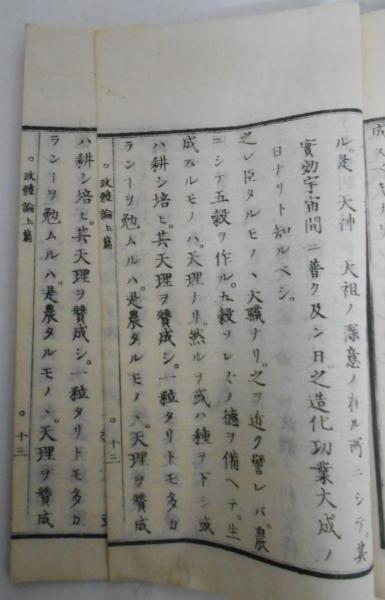 ル。是 天神 天祖ノ深意ノ在ル所ニシテ。其
實効宇宙間ニ普ク及ン日ヲ。造化功業大成ノ
日ナリト知ルベシ。
之レ臣タルモノヽ大職ナリ。之ヲ近ク譬レバ。農
ニシテ五穀ヲ作ル。五穀ソレ〴〵ノ德ヲ備ヘテ。生
成スルモノハ。天理ナリ。然ルヲ或ハ種ヲ下シ或
ハ耕シ培ヒ。其天理ヲ賛成シ。一粒タリトモ多カ
ランヿヲ勉ムルハ。是農タルモノヽ。天理ヲ賛成
○政體論上篇 ○十三
ハ耕シ培ヒ。其天理ヲ賛成シ。一粒タリトモ多カ
ランヿヲ勉ムルハ。是農タルモノヽ。天理ヲ賛成
○政體論上篇 ○十三